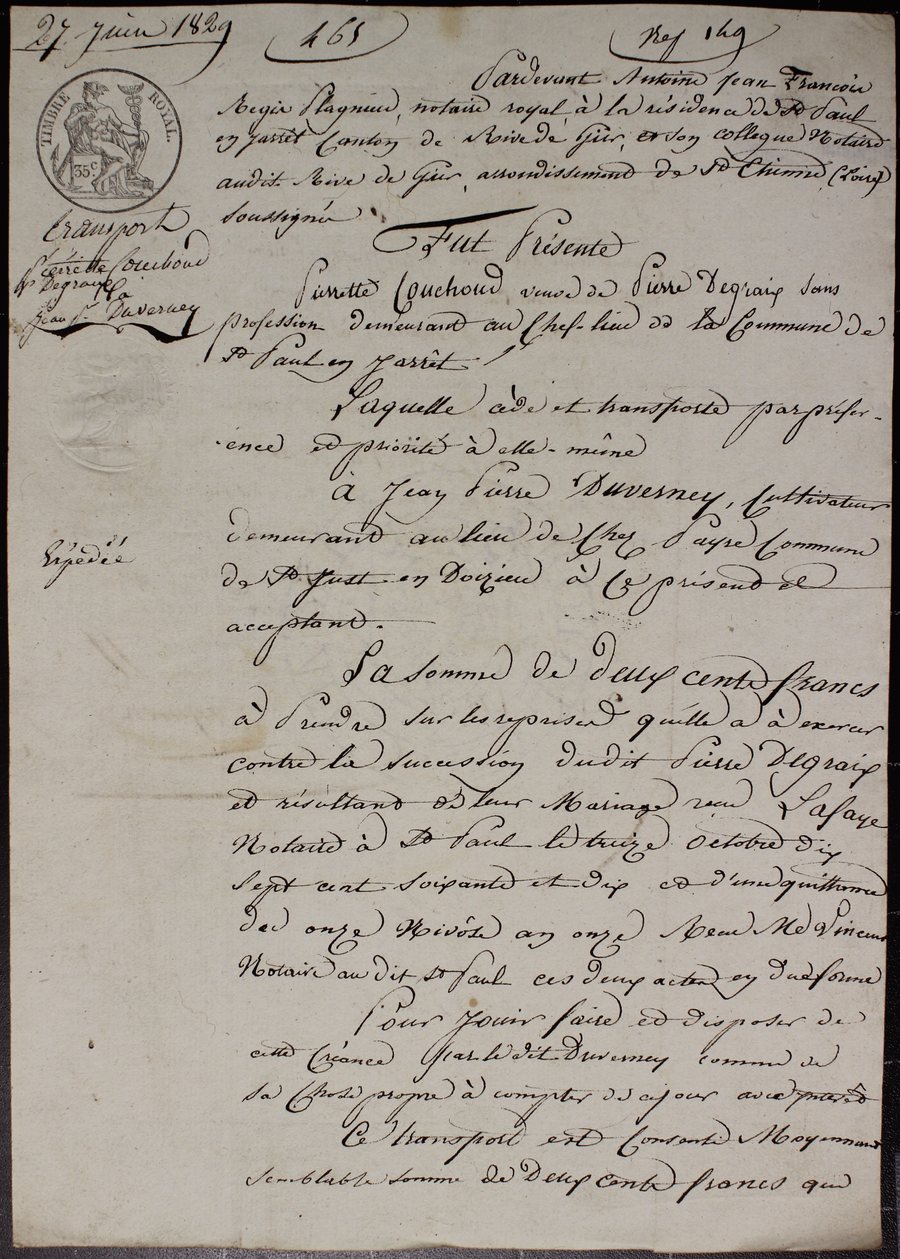 27 juin 1829
465
Rep 149
TIMBRE ROYAL.
35c
Transport
Pierrette Couchoud
Ve Degraix
à
Jean Pre Duverney
Expédiée
Pardevant Antoine Jean François
Regis Plagnieu, notaire royal à la résidence de St Paul
en jarret Canton de Rive de Gier, et son collegue Notaire
audit Rive de Gier, arrondissement de St Etienne (Loire)
soussignés
Fut Présente
Pierrette Couchoud veuve de Pierre Degraix sans
profession demeurant au Chef-lieu de la Commune de
St Paul en Jarrêt
Laquelle cède et transporte par préfér-
ence et priorité à elle-même
à Jean Pierre Duverney, Cultivateur
demeurant au lieu de Chez Payre Commune
de St Just en Doizieu à ce présent et
acceptant.
La somme de deux cents francs
à Prendre sur les reprises qu'elle a à exercer
contre la succession dudit Pierre Degraix
et résultant de leur Mariage reçu Lafaye
Notaire à St Paul le treize Octobre dix
sept cent soixante et dix et d'une quittance
du onze Nivôse an onze Reçu Me Vincent
Notaire au dit St Paul ces deux actes en due forme
Pour Jouir faire et disposer de
cette Créance par le dit Duverney comme de
sa Chose propre à compter de ce jour avec intérêt
Ce transport est Consenti Moyennant
semblable somme de Deux cents francs que